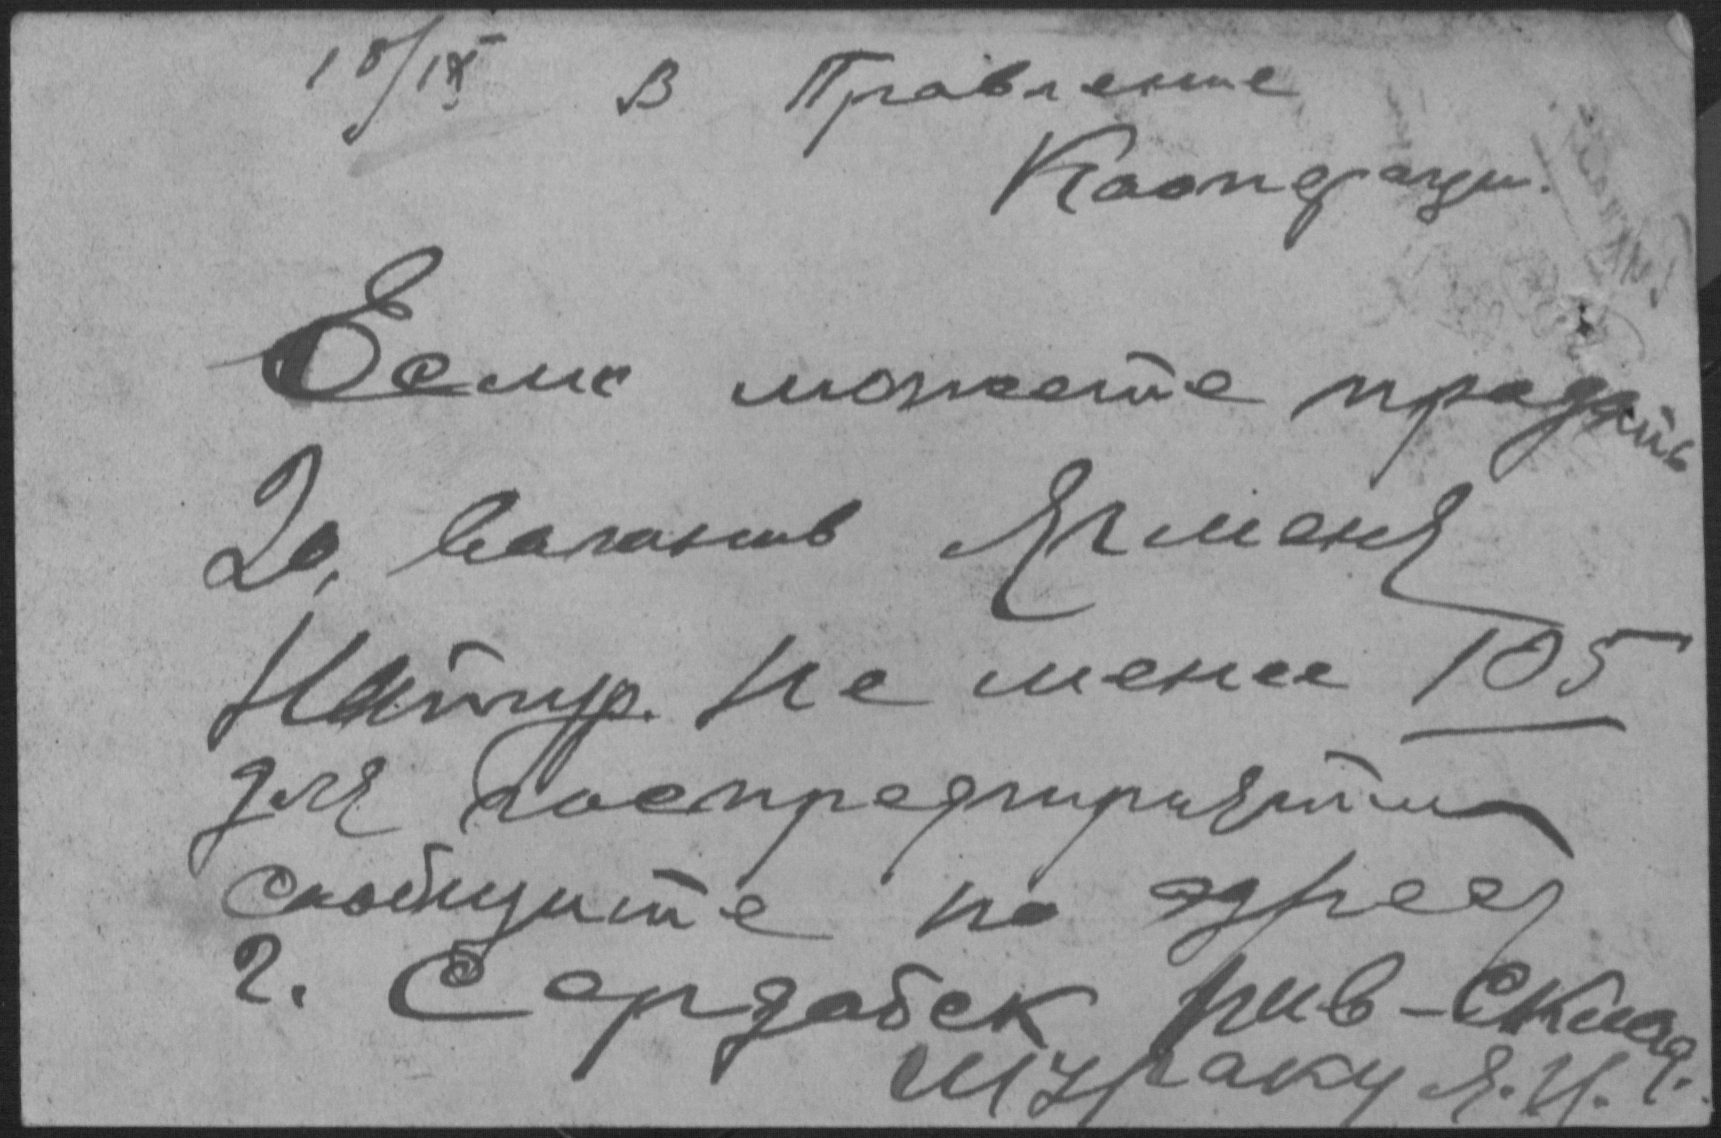 18/IX В Правление
Кооперации.
Если можете продать
20, вагонов Ячменя
Натур. не менее 105
для госпредприятии
сообщите по адресу
г. Сердобск пив-склад.
Шураку Я. И.